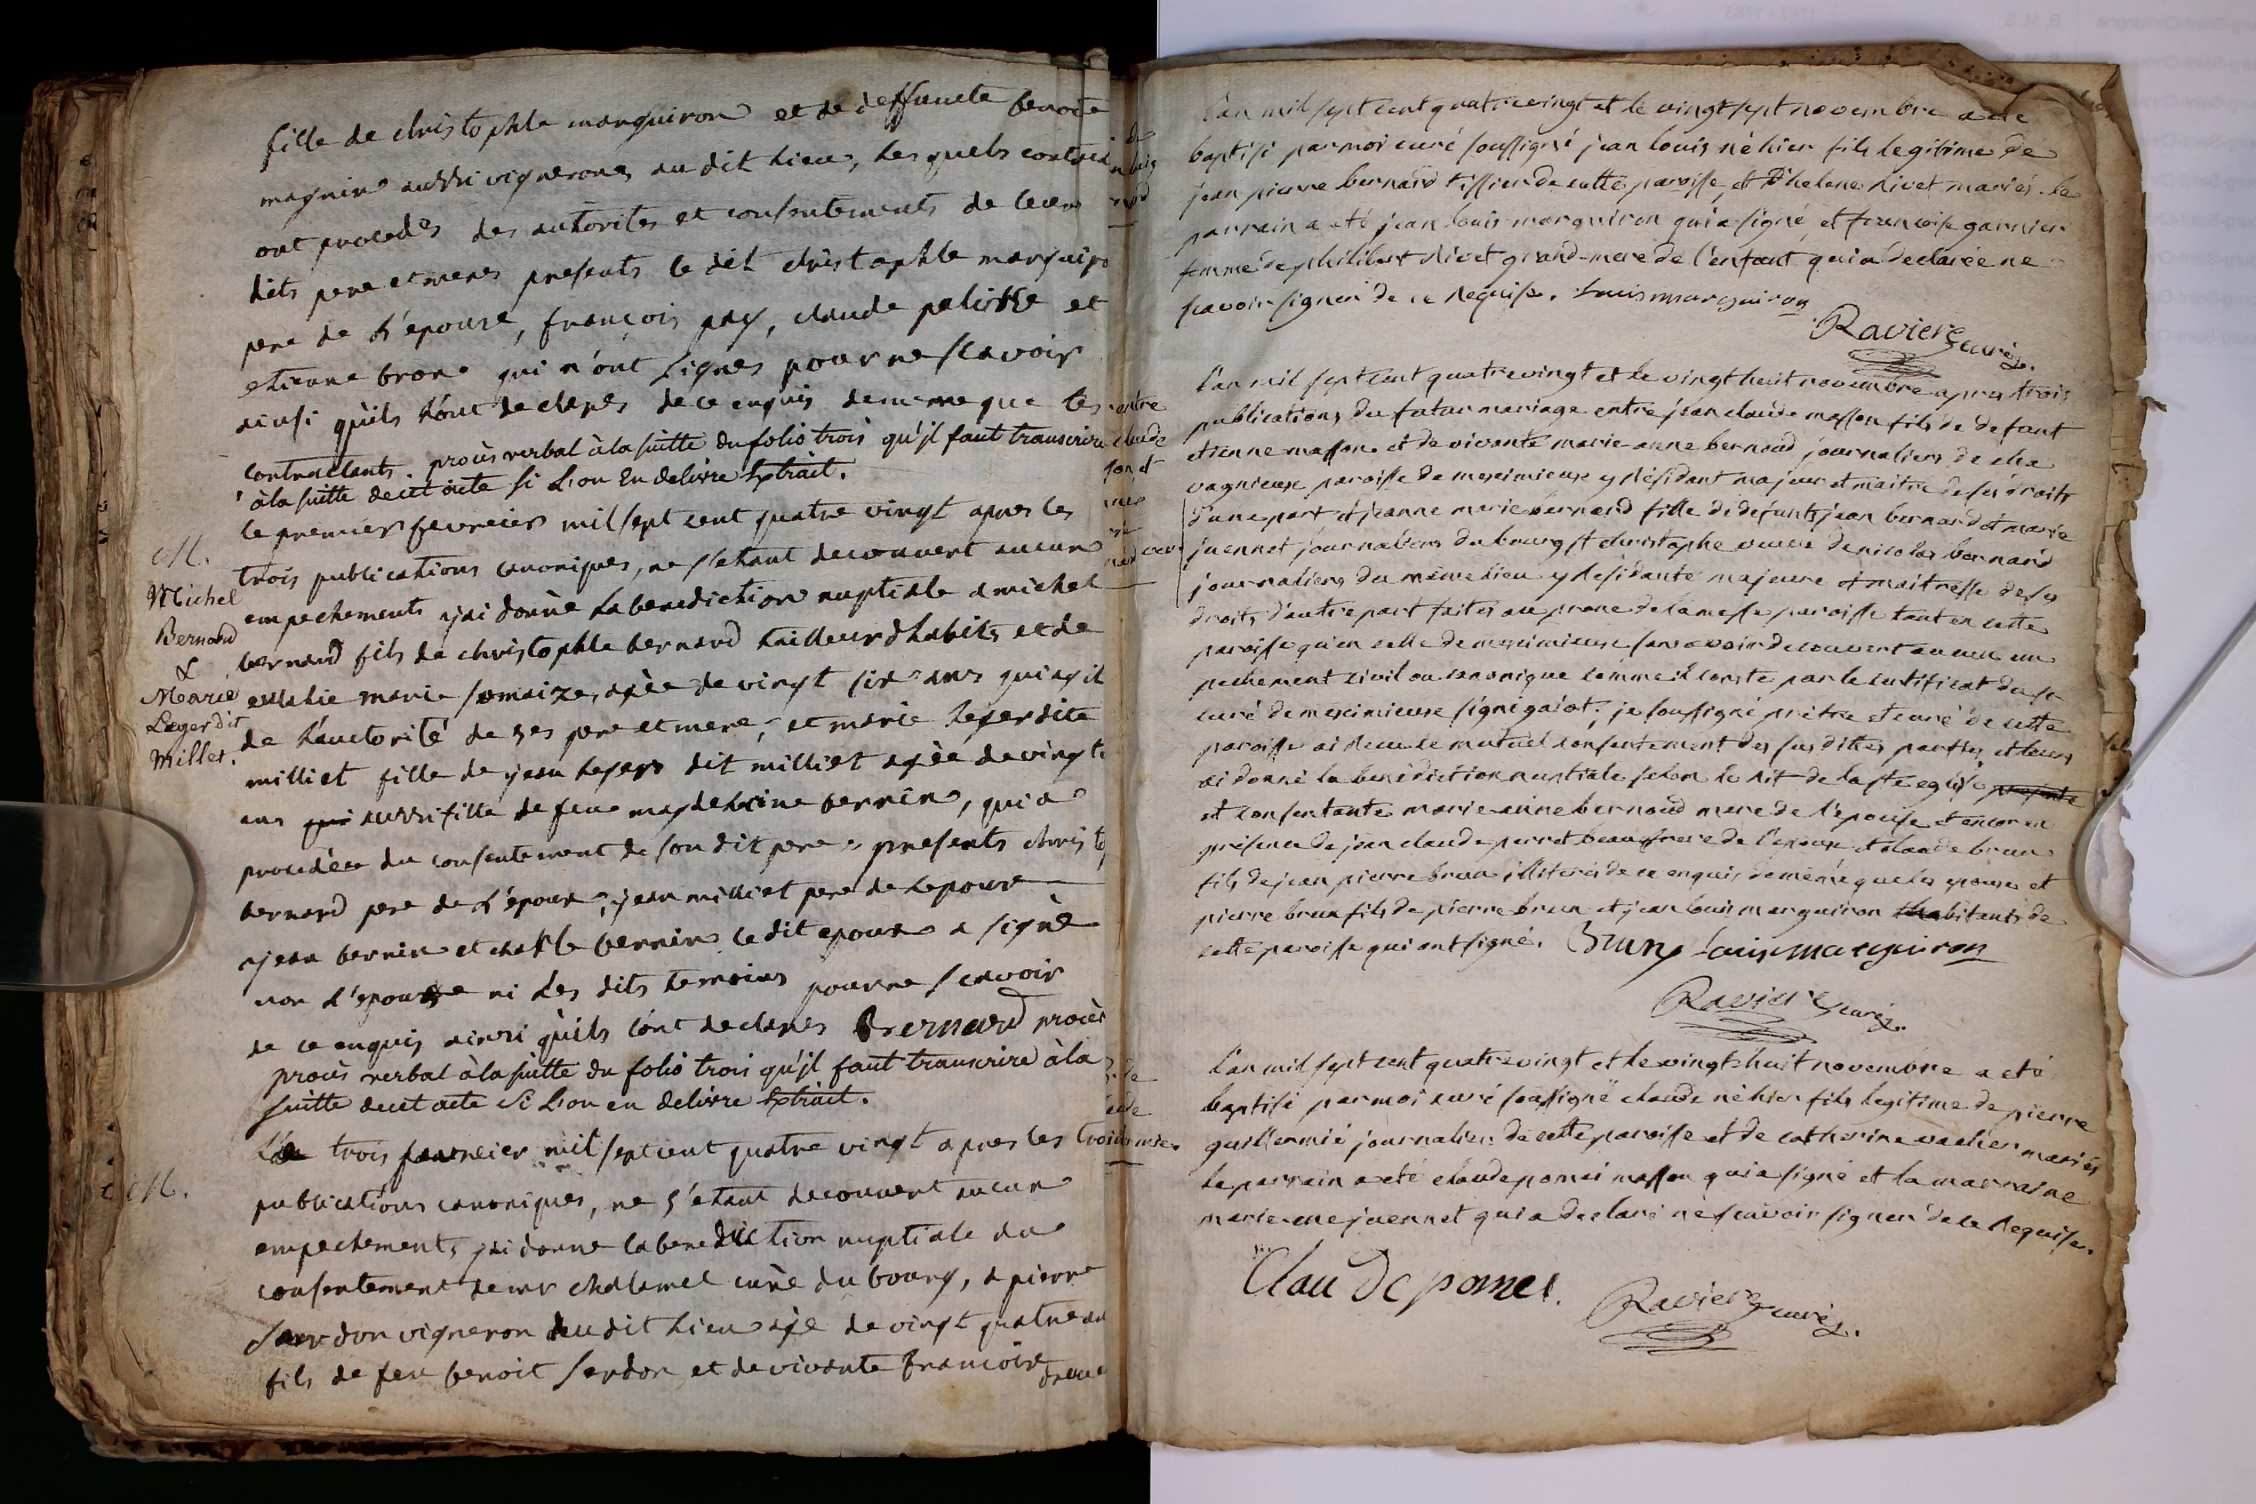 fille de christophle marguiron et de deffuncte benoite
magnin aussi vignerons au dit lieu, les quels
ont procedés des autorités et consentements de leurs
dits pere et meres presents le dit christophle marguiro
pere de l'epouse, françois pay, claude pelisse et
etienne brone qui n'ont signés pour ne scavoir
ainsi qu'ils l'ont declarés de ce enquis de meme que les
contractants. procès verbal à la suitte du folio trois qu'jl faut transcrire
à la suitte de cet acte si l'on en delivre Extrait.
M.
Michel
Bernard
&
Marie
Leger dit
Millet.
le premier fevreier mil sept cent quatre vingt apres les
trois publications canoniques, ne s'etant decouvert aucun
empechements j'ai donnè la benediction nuptiale a michel
bernard fils de christophle bernard tailleur d'habits et de
eulalie marie somaize, agèe de vingt six ans qui agit
de l'auctorité de ses pere et mere, et marie leger dite
milliet fille de jean leger dit milliet agèe de vingt
ans qui aussi fille de feue magdeleine bernin, qui a
procedèe du consentement de son dit pere presents christo
bernard pere de l'epoux, jean milliet pere de l'epouse
jean bernin et charle bernin le dit epoux a signè
non l'epouse ni les dits temoins pour ne scavoir
de ce enquis ainsi qu'ils l'ont declarés Bernard procès
procès verbal à la suitte du folio trois qu'jl faut transcrire à la
suitte de cet acte si l'on en delivre Extrait.
M.
Le trois fevreier mil sept cent quatre vingt apres les trois
publications canoniques, ne s'etant decouvert aucun
empechement, j'ai donne la benediction nuptiale du
consentement de mr chalamel curè du bourg, a pierre
Serdon vigneron du dit lieu age de vingt quatre an
fils de feu benoit serdon et de vivante francoise
l'an mil sept cent quatre vingt et le vingt sept novembre a eté
baptisé par moi curé soussigné jean louis néhier fils legitime de
jean pierre bernard tissier de cette paroisse et d'helene rivet mariés. le
parrain a eté jean louis marguiron qui a signé, et francoise garnier
femme de philibert rivet grand-mere de l'enfant qui a declarée ne
scavoir signer de ce requise. Louis marguiron
Raviere curé.
l'an mil sept cent quatre vingt et le vingt huit novembre apres trois
publications du futur mariage entre jean claude masson fils de defunt
etienne masson et de vivante marie-anne bernard journaliers de cha
vagnieux paroisse de meximieux y résidant majeur et maitre de ses droits
d'une part et jeanne marie bernard fille de defunts jean bernard et marie
juennet journaliers du bourg st christophe veuve de nicolas bernard
journaliers du même lieu y residante majeure et maitresse de ses
droits d'autre part faites au prone de la messe paroisse tant en cette
paroisse qu'en celle de meximieux sans avoir decouvert aucun em
pechement civil ou canonique comme il conste par le certificat du sr
curé de meximieux signé gaiot; je soussigné prêtre et curé de cette
paroisse ai recu le mutuel consentement des sus dittes parties et leurs
ai donné la benédiction nuptiale selon le rit de la ste eglise presente
et consentante marie-anne bernard mere de l'epouse et encor en
présence de jean claude perret beaufrere de l'epoux et claude brun
fils de jean pierre brun illiterés de ce enquis de même que les epoux et
pierre brun fils de pierre brun et jean louis marguiron habitants de
cette paroisse qui ont signé. Brun Louis marguiron
Raviere curé.
l'an mil sept cent quatre vingt et le vingt huit novembre a eté
baptisé par moi curé soussigné claude néhier fils legitime de pierre
guillermié journalier de cette paroisse et de catherine vacher mariés
le parrain a eté claude pomei masson qui a signé et la marraine
marie-ane juennet qui a declaré ne scavoir signer de ce requise.
Clau De pomei.
Raviere curé.